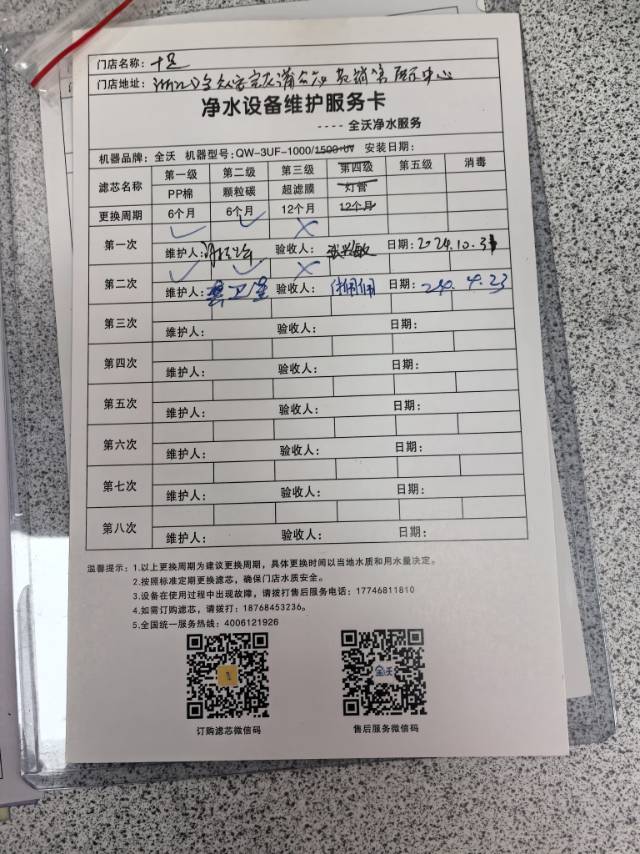 门店名称：十足
门店地址：
净水设备维护服务卡
---- 全沃净水服务
机器品牌：全沃 机器型号：QW-3UF-1000/1500+UV 安装日期：
滤芯名称 第一级 第二级 第三级 第四级 第五级 消毒
PP棉 颗粒碳 超滤膜 灯管
更换周期 6个月 6个月 12个月 12个月
第一次 ✓ ✓ ×
维护人： 验收人： 日期：2024.10.31
第二次 ✓ ✓ ×
维护人： 验收人： 日期： 4.23
第三次
维护人： 验收人： 日期：
第四次
维护人： 验收人： 日期：
第五次
维护人： 验收人： 日期：
第六次
维护人： 验收人： 日期：
第七次
维护人： 验收人： 日期：
第八次
维护人： 验收人： 日期：
温馨提示：1.以上更换周期为建议更换周期，具体更换时间以当地水质和用水量决定。
2.按照标准定期更换滤芯，确保门店水质安全。
3.设备在使用过程中出现故障，请拨打售后服务电话：17746811810
4.如需订购滤芯，请拨打：18768453236。
5.全国统一服务热线：4006121926
全沃
订购滤芯微信码 售后服务微信码